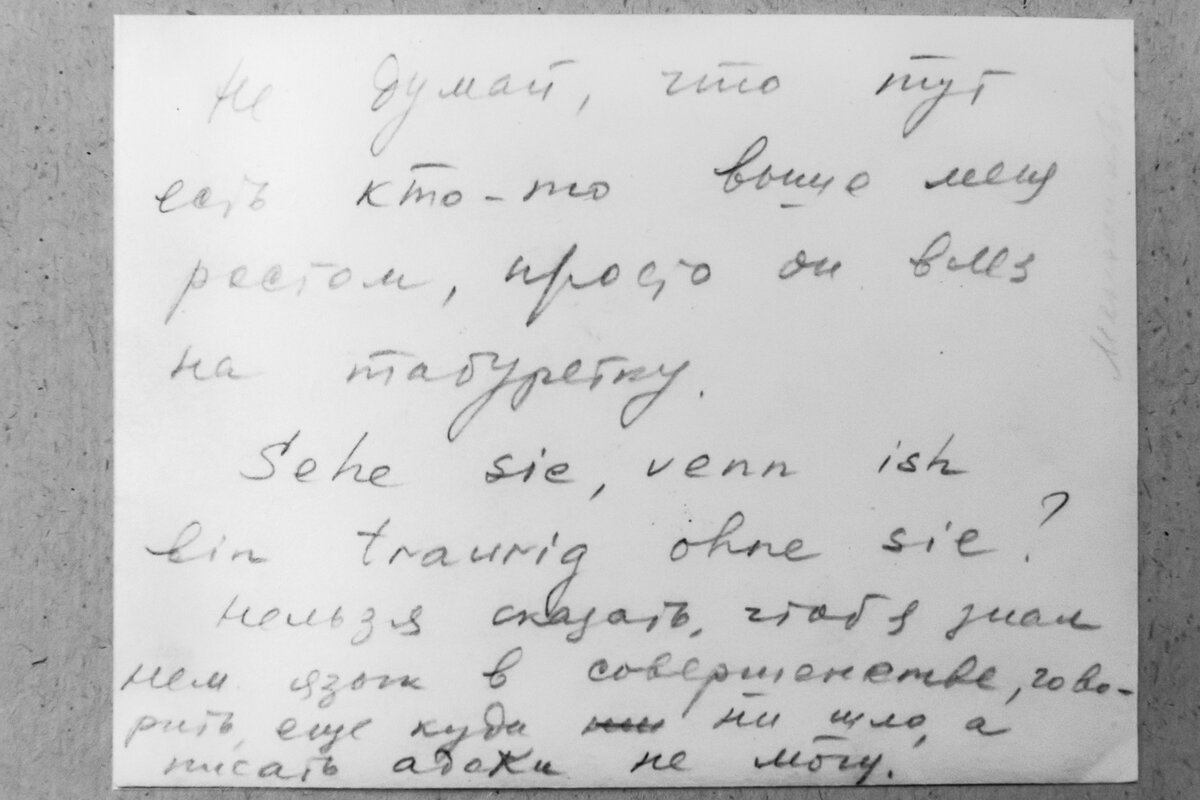 Не думай, что тут
есть кто-то выше меня
ростом, просто он влез
на табуретку.
Sehe sie, venn ish
bin traurig ohne sie?
Нельзя сказать, чтоб я знал
нем язык в совершенстве, гово-
рить, еще куда ни шло, а
писать абаки не могу.